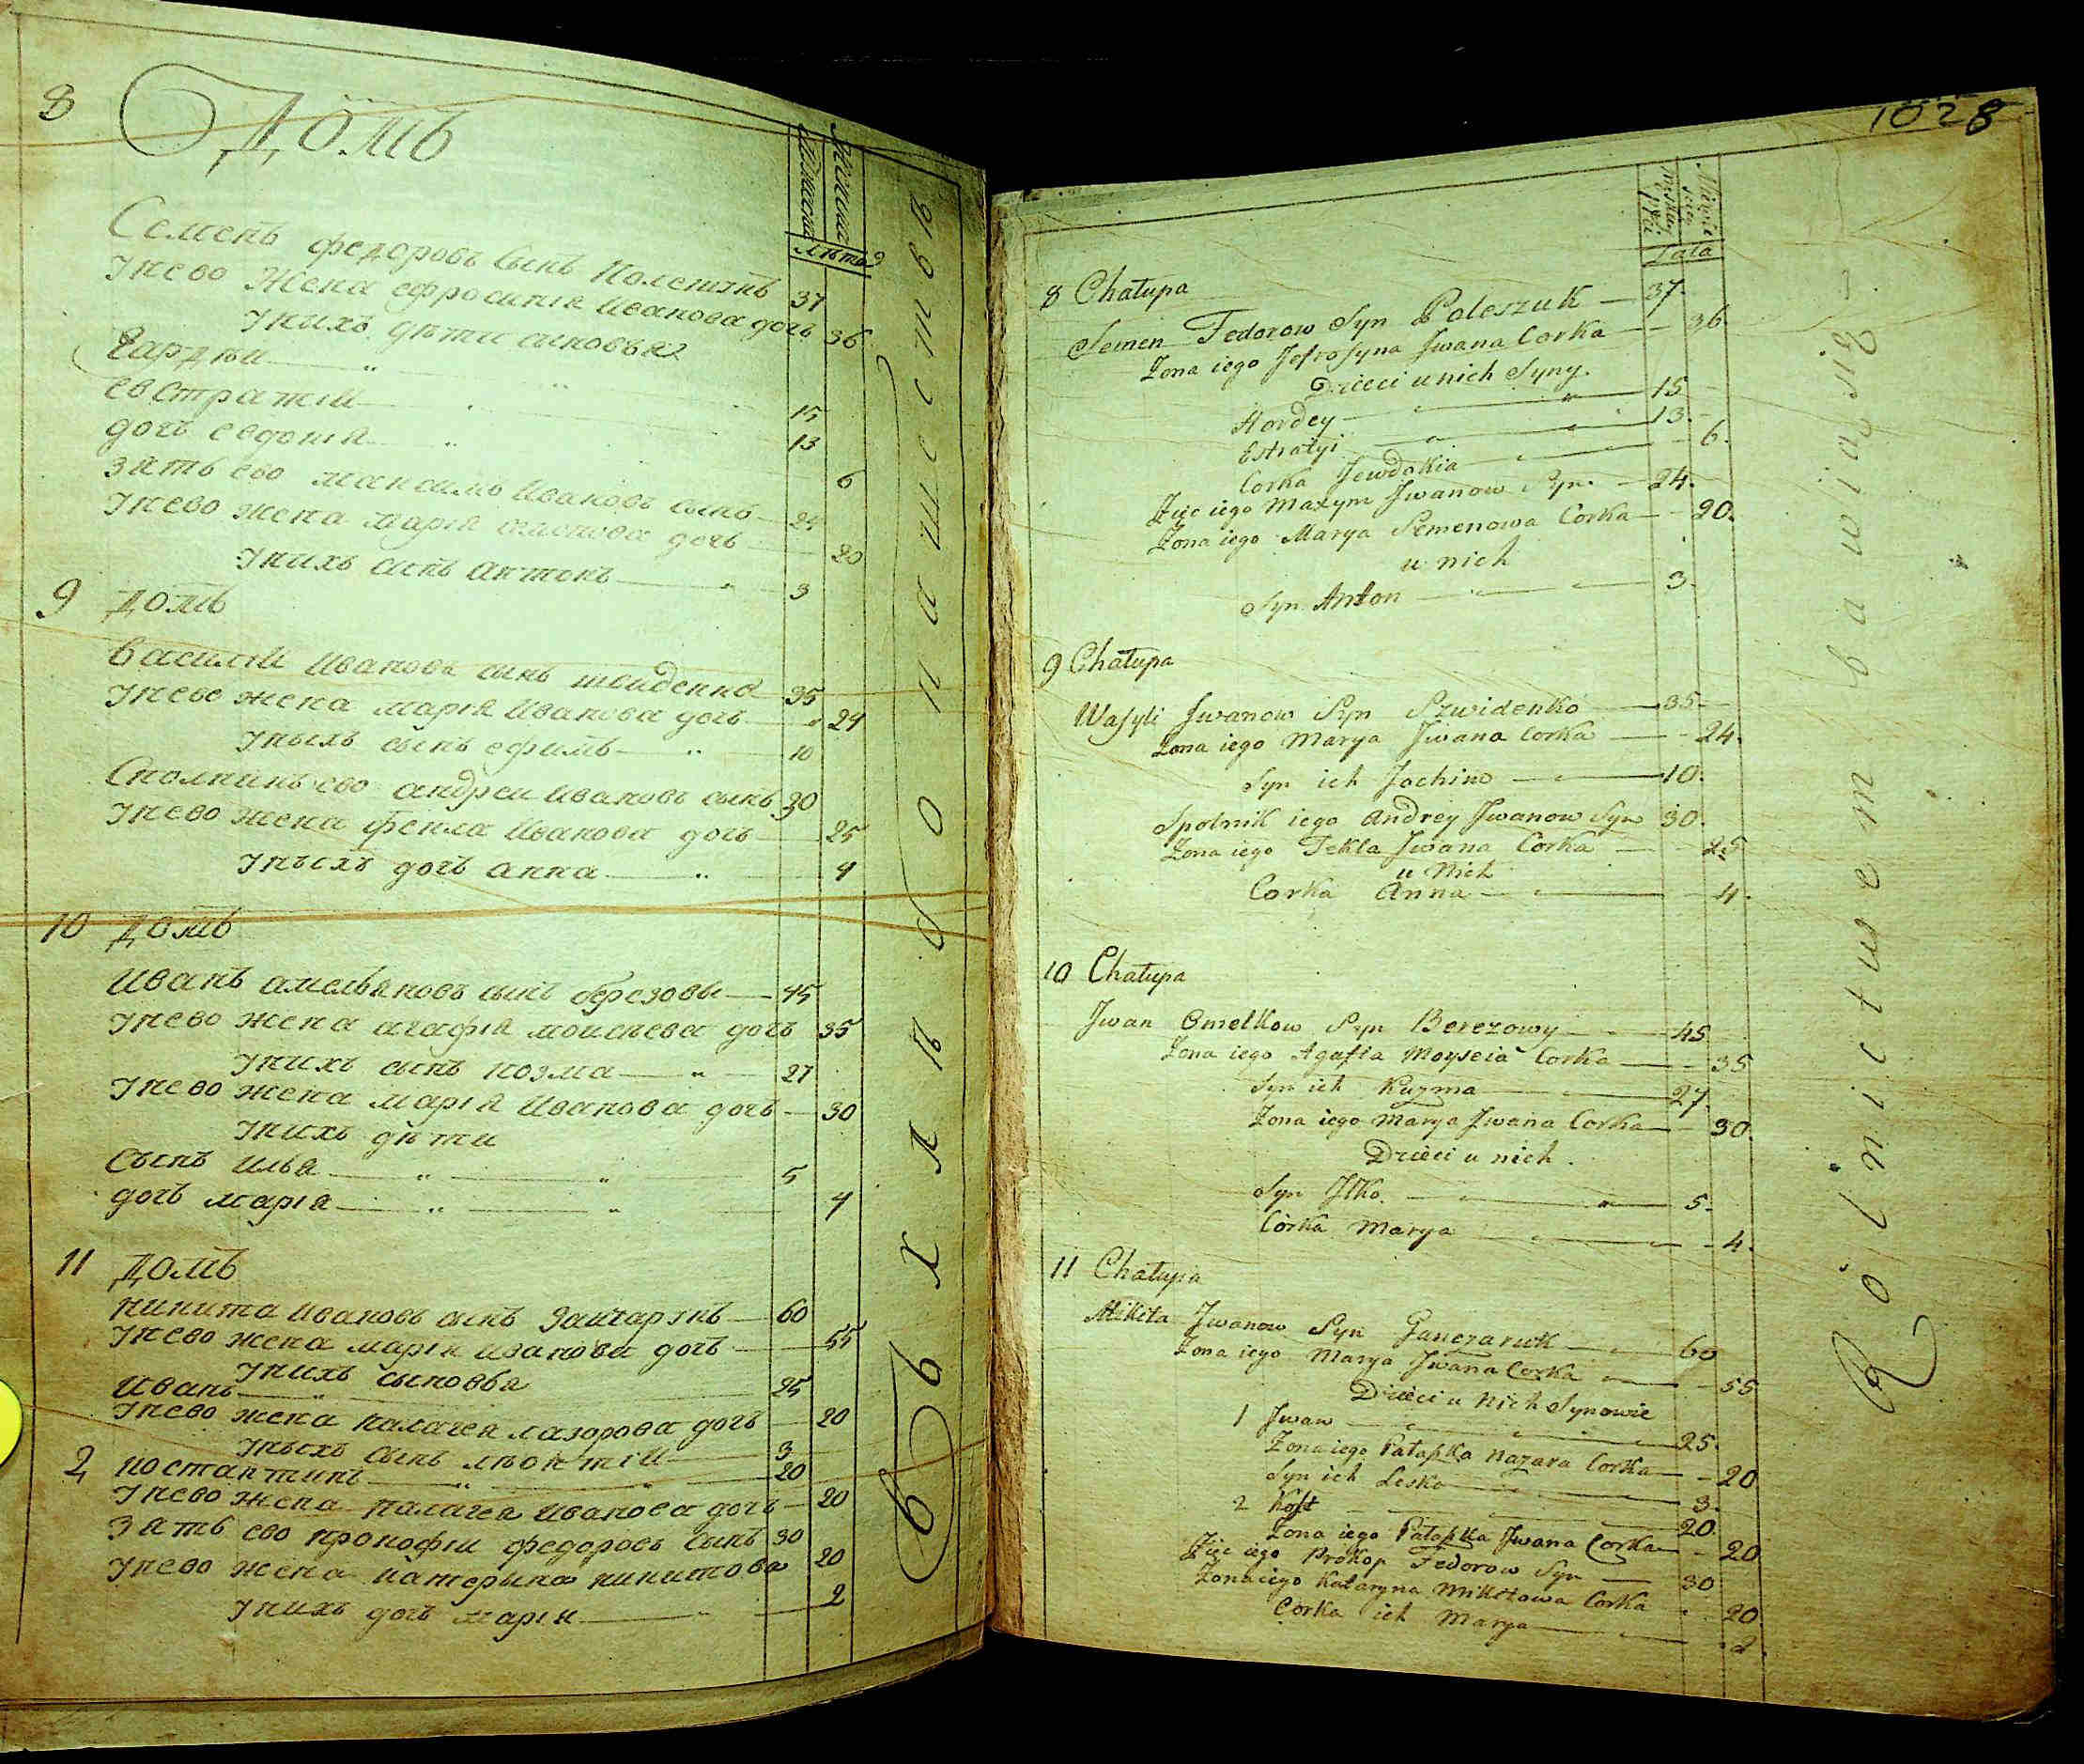 8 Домъ
Мужеска
Женска
лѣта
Семенъ федоровъ сынъ Полешукъ 37
Унево Жена ефросинія Иванова дочь 36
Уныхъ дѣти сыновья
Гардѣи 15
евстратіи 13
дочь евдокія 6
зять ево максимъ Ивановъ сынъ 24
Унево жена марія семенова дочь 20
Унихъ сынъ антонъ 3
9 Домъ
Василіи Ивановъ сынъ швиденко 35
Унево жена марія Иванова дочь 24
Уныхъ сынъ ефимъ 10
Сполникъ ево андреи Ивановъ сынъ 30
Унево жена фекла Иванова дочь 25
Уныхъ дочь анна 4
10 Домъ
Иванъ амельяновъ сынъ березовы 45
Унево жена агафія моисѣева дочь 35
Унихъ сынъ козма 27
Унево жена марія Иванова дочь 30
Унихъ дѣти
Сынъ илья 5
дочь марія 4
11 Домъ
никита Ивановъ сынъ Ганчарукъ 60
Унево жена марія иванова дочь 55
Унихъ сыновья
Иванъ 25
Унево жена палагея лазорова дочь 20
Уныхъ сынъ лѣонтіи 3
2 костантинъ 20
Унево жена палагея Иванова дочь 20
Зять ево прокофіи федоровъ сынъ 30
Унево жена катерына никитова 20
Унихъ дочь марія 2
Въ хлѣбопашествѣ
1028
Lata
8 Chałupa
Semen Fedorow Syn Poleszuk 37.
Zona iego Jefrosyna Jwana Corka 36.
Dzieci u nich Syny.
Hordey 15
Estratyi 13.
Corka Jewdokia 6.
Zięc iego Maxym Jwanow Syn 24.
Zona iego Marya Semenowa Corka 20.
u nich
Syn Anton 3.
9 Chałupa
Wasyli Jwanow Syn Szwidenko 35.
Zona iego Marya Jwana Corka 24.
Syn ich Jochim 10.
Spolnik iego Andrey Jwanow Syn 30.
Zona iego Tekla Jwana Corka 25
u Nich
Corka Anna 4.
10 Chałupa
Jwan Omelkow Syn Berezowy 45
Zona iego Agafia Moyseia Corka 35
Syn ich Kuzma 27.
Zona iego Marya Jwana Corka 30.
Dzieci u nich.
Syn Jlko. 5.
Córka Marya 4.
11 Chałupa
Mikita Jwanow Syn Ganczaruk 60
Zona iego Marya Jwana Corka 55
Dzieci u Nich Synowie
1 Jwan 25.
Zona iego Patapka Nazara Corka 20
Syn ich Lesko 3.
2 Kost 20.
Zona iego Patapka Jwana Corka 20
Zięc iego Prokop Fedorow Syn 30
Zona iego Kataryna Mikitowa Corka 20
Corka ich Marya 2.
Rolnictwem bawią się